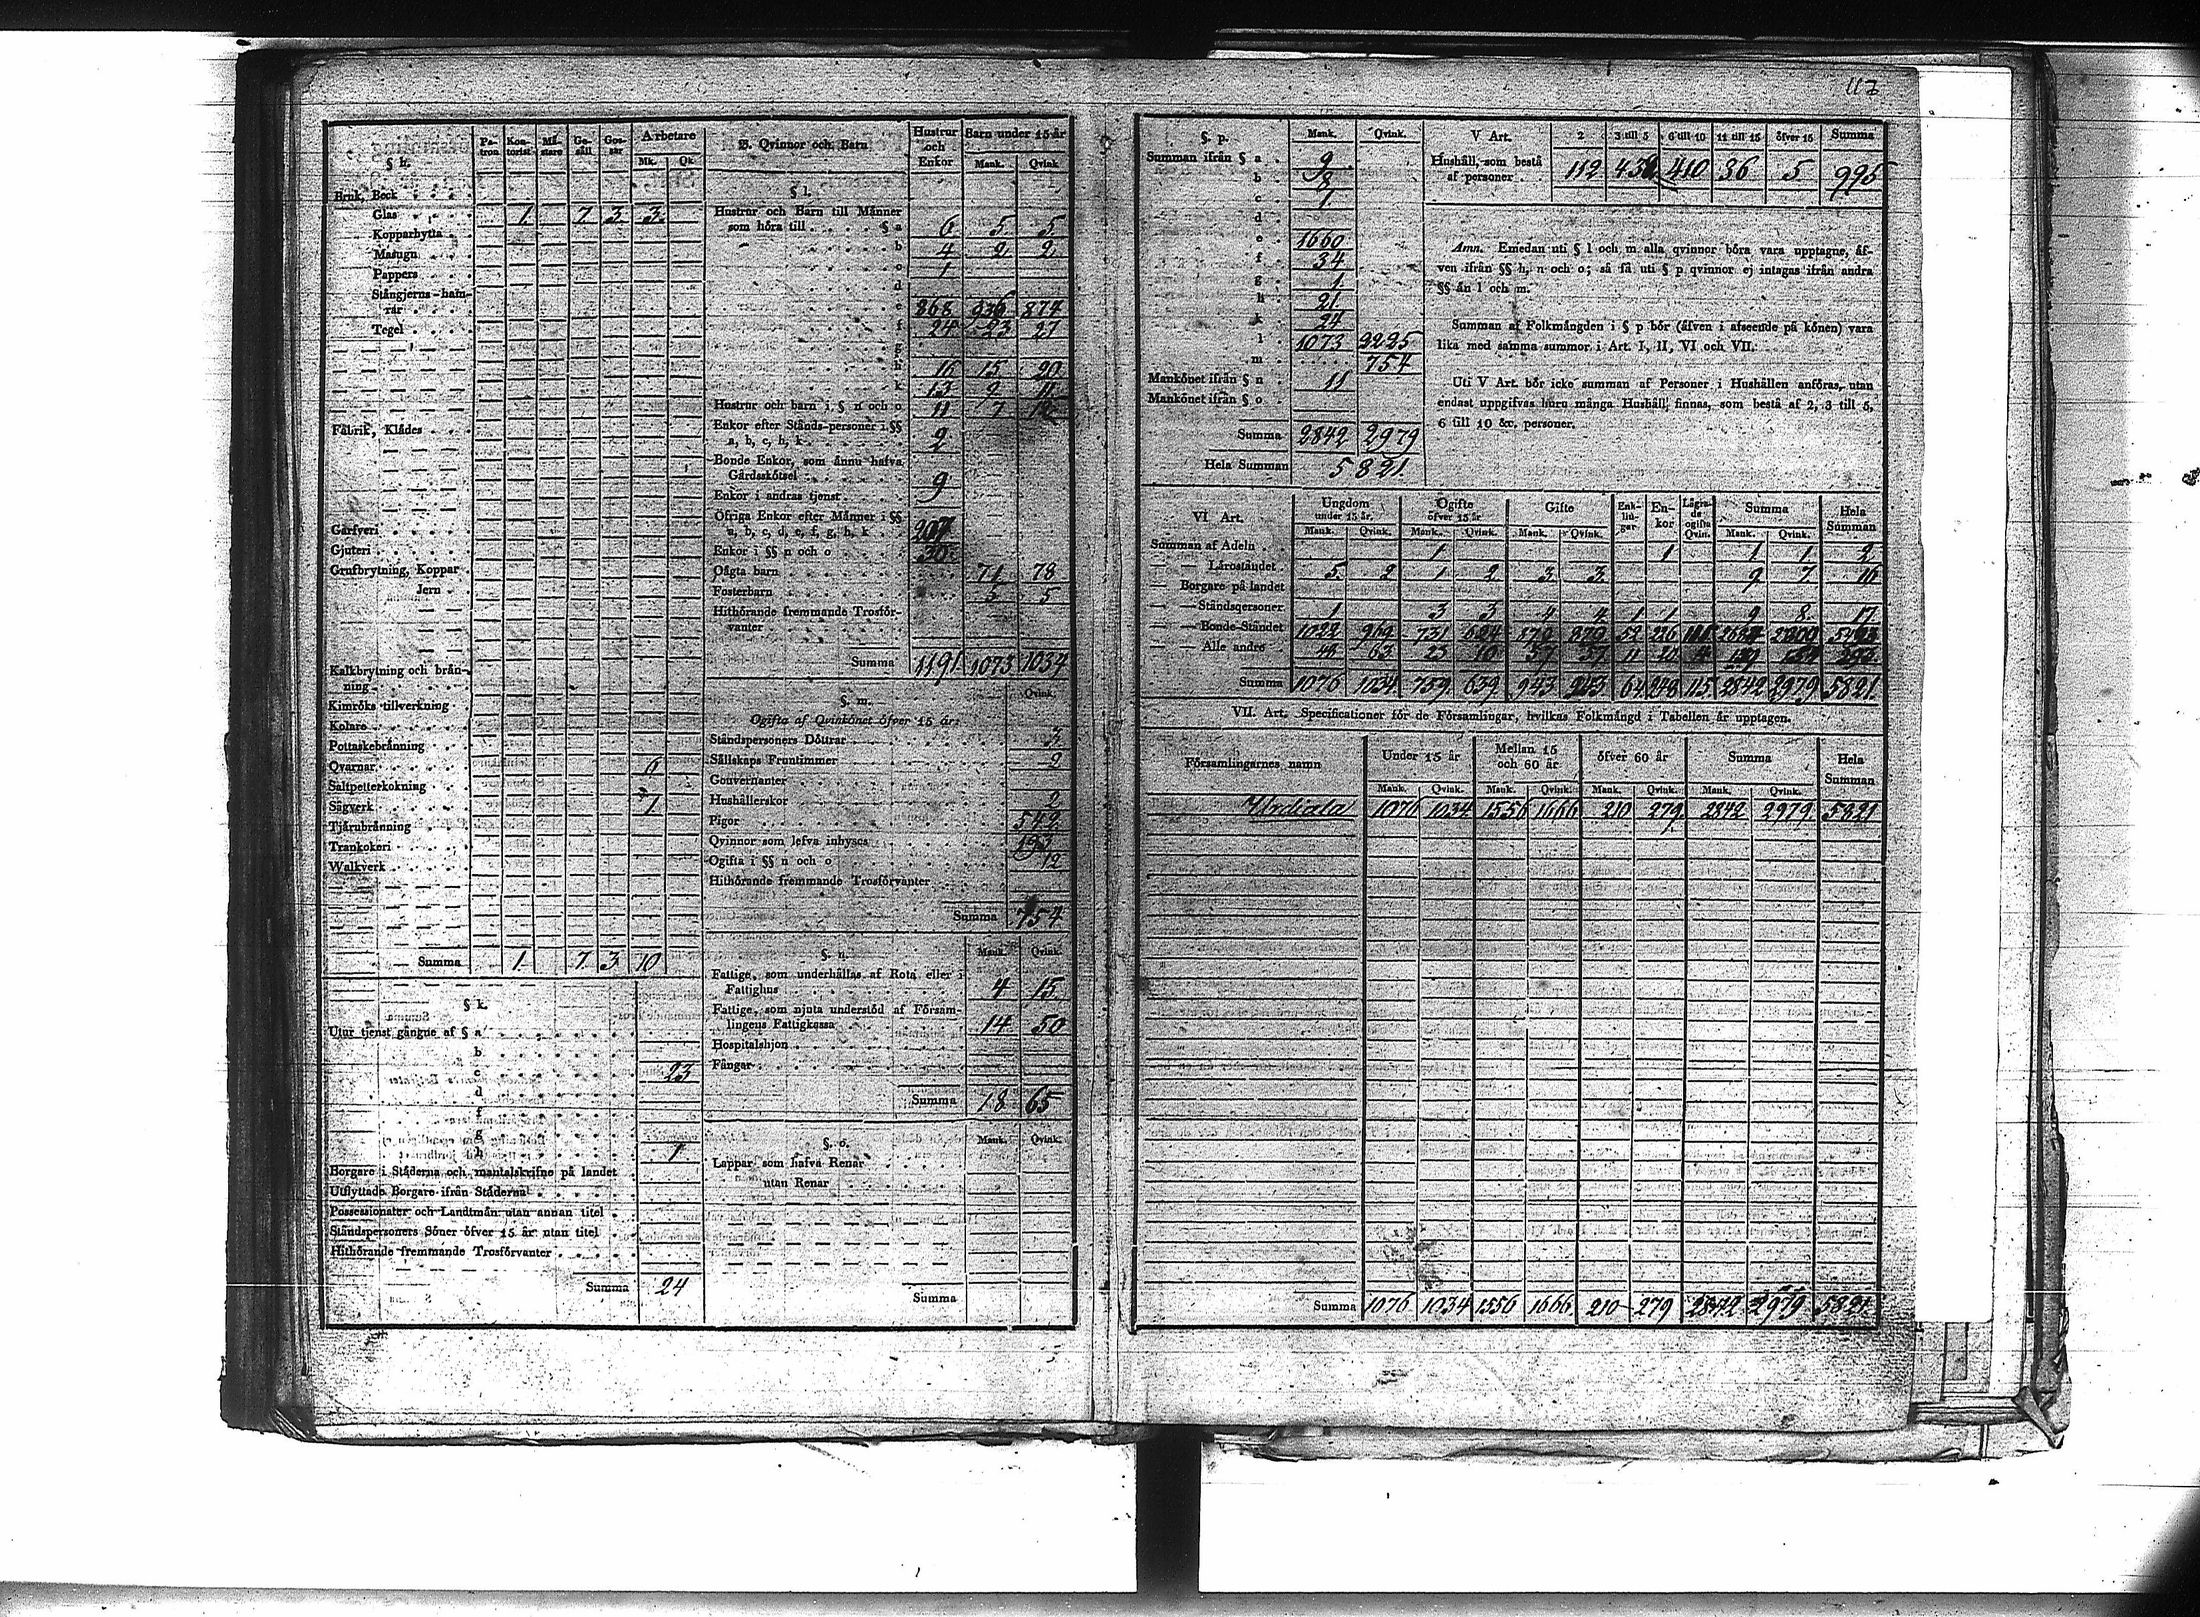 117
§ h.
Pa- tron Kon- torist Mä- stare Ge- säll Gos- sar Arbetare
Mk. Qk.
Bruk, Beck
Glas 1. 7. 3. 3.
Kopparhytta
Masugn
Pappers
Stångjerns-ham-
rar
Tegel
Fabrik, Klädes
Garfveri
Gjuteri
Grufbrytning, Koppar
Jern
Kalkbrytning och brän-
ning
Kimröks tillverkning
Kolare
Pottaskebränning
Qvarnar 6
Saltpetterkokning
Sågverk 1.
Tjärubränning
Trankokeri
Walkverk
Summa 1. 7. 3. 10
§ k.
Utur tjenst gångne af § a
b
c 23
d
f
g
h 1
Borgare i Städerna och mantalskrifne på landet
Utflyttade Borgare ifrån Städerna
Possessionater och Landtmän utan annan titel
Ståndspersoners Söner öfver 15 år utan titel
Hithörande fremmande Trosförvanter
Summa 24
B. Qvinnor och Barn Hustrur och Enkor Barn under 15 år
Mank. Qvink.
§ l.
Hustrur och Barn till Männer
som höra till § a 6 5 5
b 4 2 2
c 1
d
e 868 936 874
f 24 23 27
g
h 16 15 20
k 13 9 11
Hustrur och barn i § n och o 11 7 12
Enkor efter Stånds-personer i §§
a, b, c, h, k 2
Bonde Enkor, som ännu hafva
Gårdsskötsel 9
Enkor i andras tjenst
Öfriga Enkor efter Männer i §§
a, b, c, d, e, f, g, h, k 207
Enkor i §§ n och o 30
Oägta barn 71 78
Fosterbarn 5 5
Hithörande fremmande Trosför-
vanter
Summa 1191 1073 1034
§ m. Qvink.
Ogifta af Qvinkönet öfver 15 år:
Ståndspersoners Döttrar 3
Sällskaps Fruntimmer 2
Gouvernanter
Hushållerskor 2
Pigor 542
Qvinnor som lefva inhyses 193
Ogifta i §§ n och o 12
Hithörande fremmande Trosförvanter
Summa 754
§ n. Mank. Qvink.
Fattige, som underhållas af Rota eller i
Fattighus 4 15
Fattige, som njuta understöd af Försam-
lingens Fattigkassa 14 50
Hospitalshjon
Fångar
Summa 18 65
§ o. Mank. Qvink.
Lappar som hafva Renar
utan Renar
Summa
§. p. Mank. Qvink.
Summan ifrån § a 9
b 8
c 1
d
e 1660
f 34
g 1
h 21
k 24
l 1073 2225
m 754
Mankönet ifrån § n 11
Mankönet ifrån § o
Summa 2842 2979
Hela Summan 5821
V Art. 2 3 till 5 6 till 10 11 till 15 öfver 15 Summa
Hushåll, som bestå
af personer 112 432 410 36 5 995
Amn. Emedan uti § l och m alla qvinnor böra vara upptagne, äf-
ven ifrån §§ h, n och o; så få uti § p qvinnor ej intagas ifrån andra
§§ än l och m.
Summan af Folkmängden i § p bör (äfven i afseende på könen) vara
lika med samma summor i Art. I, II, VI och VII.
Uti V Art. bör icke summan af Personer i Hushållen anföras, utan
endast uppgifvas huru många Hushåll finnas, som bestå af 2, 3 till 5,
6 till 10 &c. personer.
VI Art. Ungdom under 15 år. Ogifte öfver 15 år Gifte Enk- lin- gar En- kor Lägra- de ogifta Qvin. Summa Hela Summan
Mank. Qvink. Mank. Qvink. Mank. Qvink. Mank. Qvink.
Summan af Adeln 1 1 1 1 2
— — Läroståndet 5 2 1 2 3 3 9 7 16
— — Borgare på landet
— — Ståndspersoner 1 3 3 4 4 1 1 9 8 17
— — Bonde-Ståndet 1022 969 731 624 879 879 52 226 111
— — Alle andre 48 63 23 10 57 57 11 20 4
Summa 1076 1034 759 639 943 943 64 248 115 2842 2979 5821
VII. Art. Specificationer för de Församlingar, hvilkas Folkmängd i Tabellen är upptagen.
Församlingarnes namn Under 15 år Mellan 15 och 60 år öfver 60 år Summa Hela Summan
Mank. Qvink. Mank. Qvink. Mank. Qvink. Mank. Qvink.
Urdiala 1076 1034 1556 1666 210 279 2842 2979 5821
Summa 1076 1034 1556 1666 210 279 2842 2979 5821